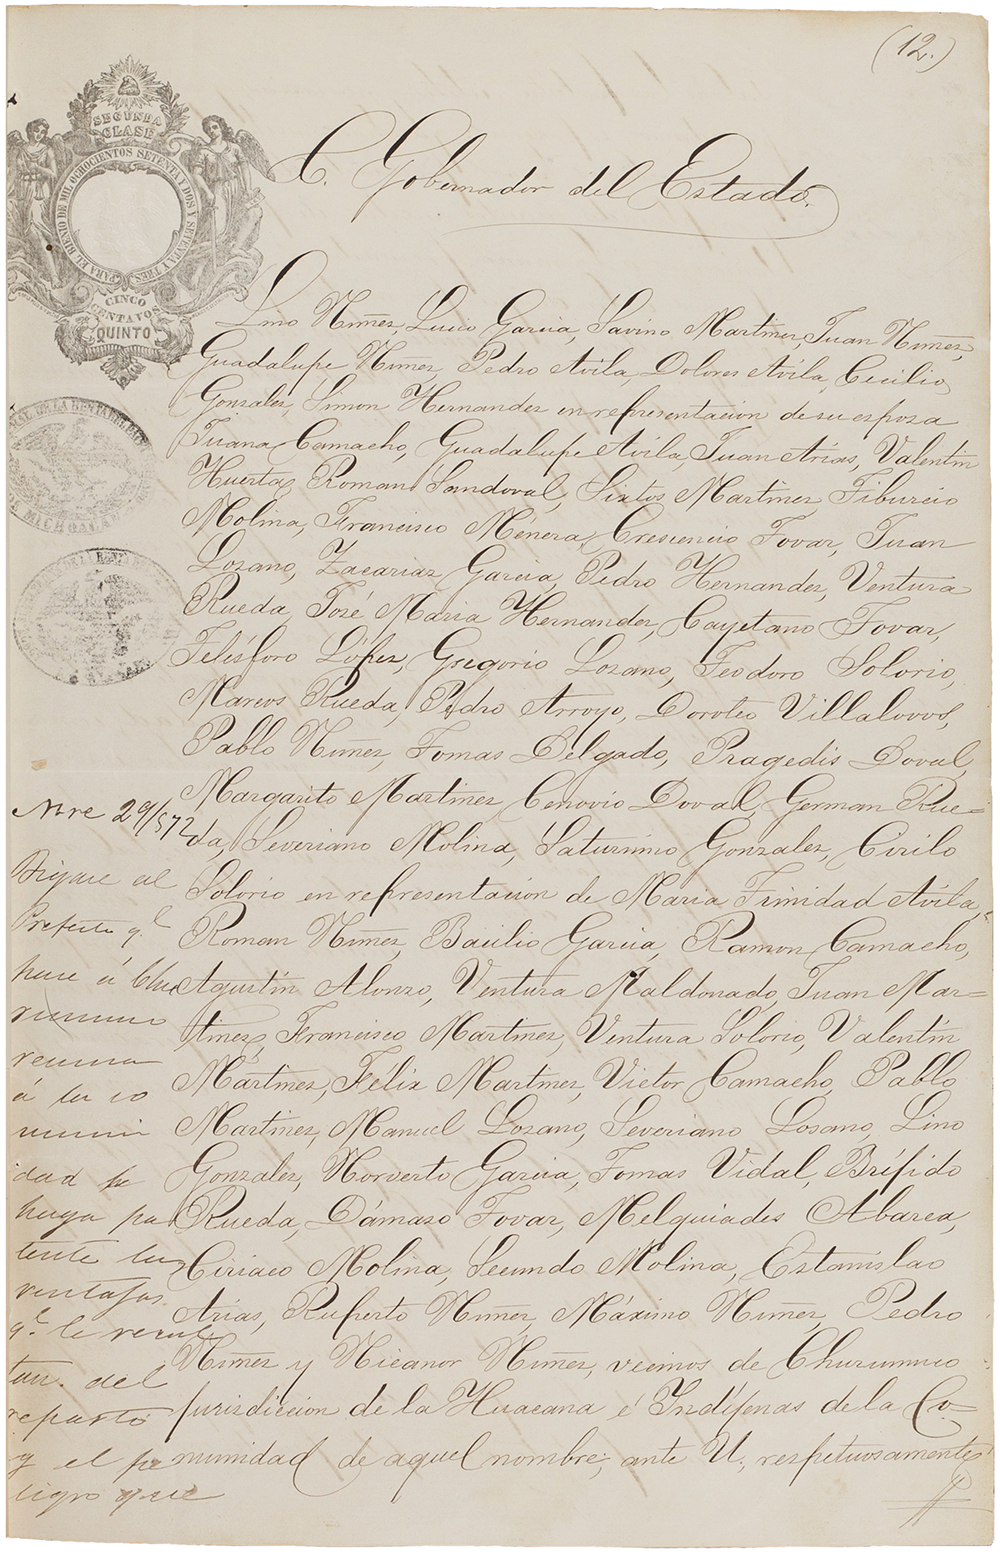 (12.)
SEGUNDA
CLASE
PARA EL BIENIO DE MIL OCHOCIENTOS SETENTA Y DOS Y SETENTA Y TRES
CINCO
CENTAVOS
QUINTO
C. Gobernador del Estado.
Lino Nuñez, Lucio Garcia, Savino Martinez, Juan Nuñez,
Guadalupe Nuñez, Pedro Avila, Dolores Avila, Cecilio
Gonzalez, Simon Hernandez en representacion de su esposa
Juana Camacho, Guadalupe Avila, Juan Arias, Valentin
Huerta, Roman Sandoval, Sixtos Martinez, Tiburcio
Molina, Francisco Ménera, Crescencio Tovar, Juan
Lozano, Zacarias Garcia, Pedro Hernandez, Ventura
Rueda, José Maria Hernandez, Cayetano Tovar,
Telésforo López, Gregorio Lozano, Teodoro Solorio,
Marcos Rueda, Pedro Arroyo, Doroteo Villalovos,
Pablo Nuñez, Tomas Delgado, Pragedis Doval,
Margarito Martinez, Cenovio Doval, German Rue=
da, Severiano Molina, Saturnino Gonzalez, Cirilo
Solorio en representación de Maria Trinidad Avila,
Roman Nuñez, Bacilio Garcia, Ramon Camacho,
Agustín Alonzo, Ventura Maldonado, Juan Mar=
tinez, Francisco Martinez, Ventura Solorio, Valentín
Martinez, Félix Martinez, Victor Camacho, Pablo
Martinez, Manuel Lozano, Severiano Losano, Lino
Gonzalez, Norverto Garcia, Tomas Vidal, Bríjido
Rueda, Dámazo Tovar, Melquiades Abarca,
Ciriaco Molina, Secundo Molina, Estanislao
Arias, Ruperto Nuñez, Máximo Nuñez, Pedro
Nuñez y Nicanor Nuñez, vecinos de Churumuco
jurisdiccion de la Huacana é Indíjenas de la Co=
munidad de aquel nombre; ante U, respetuosamente
Nvre 29/872
Dígase al
Prefecto q.e
pase á Chu
rumuco
reuna
á la co
muni
dad
haga pa
tente las
ventajas
q.e le resul
tan del
reparto
y el pe
ligro que